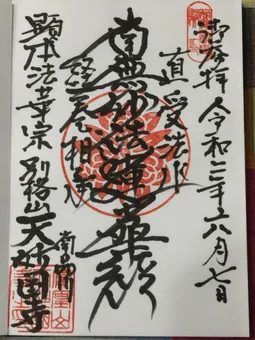 令和二年六月七日
直受法水
南無妙法蓮華経
経巻相承
南品川
顕本法華宗 別格山 天妙国寺